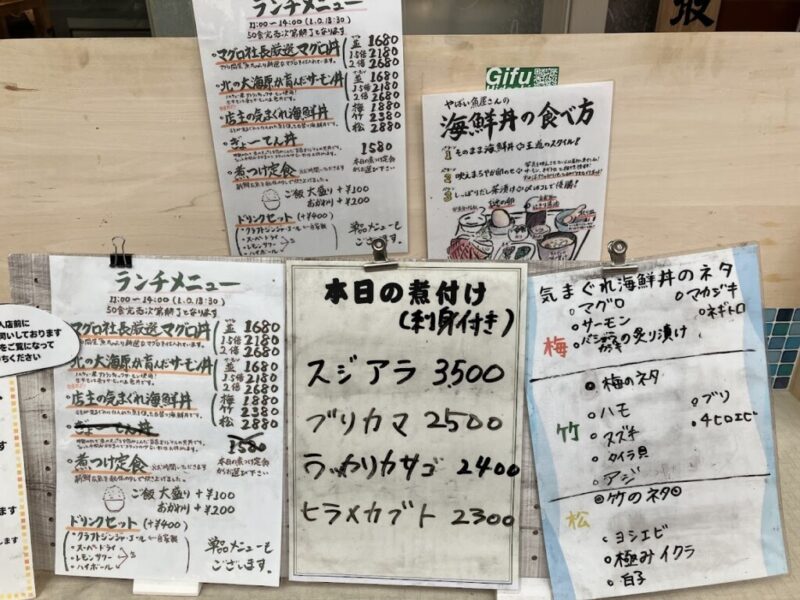 ランチメニュー
11:00~14:00(L.O.13:30)
50食完売次第終了となります
・マグロ社長厳選マグロ丼
並 1680
1.5倍 2180
2倍 2680
・北の大海原が育んだサーモン丼
1680
1.5倍 2180
2倍 2680
・店主の気まぐれ海鮮丼
梅 1880
竹 2380
松 2880
・ぎょーてん丼
1580
・煮つけ定食
本日の煮つけ定食
からお選び下さい
ご飯 大盛り +¥100
おかわり +¥200
ドリンクセット (+¥400)
・クラフトジンジャーエール
・スーパードライ
・レモンサワー
・ハイボール
単品メニューも
ございます。
Gifu
やばい魚屋さんの
海鮮丼の食べ方
1 そのまま海鮮丼
王道のスタイル!
2
3
入店前に
ランチメニュー
11:00~14:00(L.O.13:30)
50食完売次第終了となります
・マグロ社長厳選マグロ丼
並 1680
1.5倍 2180
2倍 2680
・北の大海原が育んだサーモン丼
1680
1.5倍 2180
2倍 2680
・店主の気まぐれ海鮮丼
梅 1880
竹 2380
松 2880
・ぎょーてん丼
1580
・煮つけ定食
本日の煮つけ定食
からお選び下さい
ご飯 大盛り +¥100
おかわり +¥200
ドリンクセット (+¥400)
・クラフトジンジャーエール
・スーパードライ
・レモンサワー
・ハイボール
単品メニューも
ございます。
本日の煮付け
(刺身付き)
スジアラ 3500
ブリカマ 2500
ウッカリカサゴ 2400
ヒラメカブト 2300
気まぐれ海鮮丼のネタ
梅
○マグロ
○マカジキ
○サーモン
○ネギトロ
の炙り漬け
竹
梅のネタ
○ハモ
○ブリ
○スズキ
○タイラ貝
○アジ
松
◎竹のネタ◎
○ヨシエビ
○極みイクラ
○白子